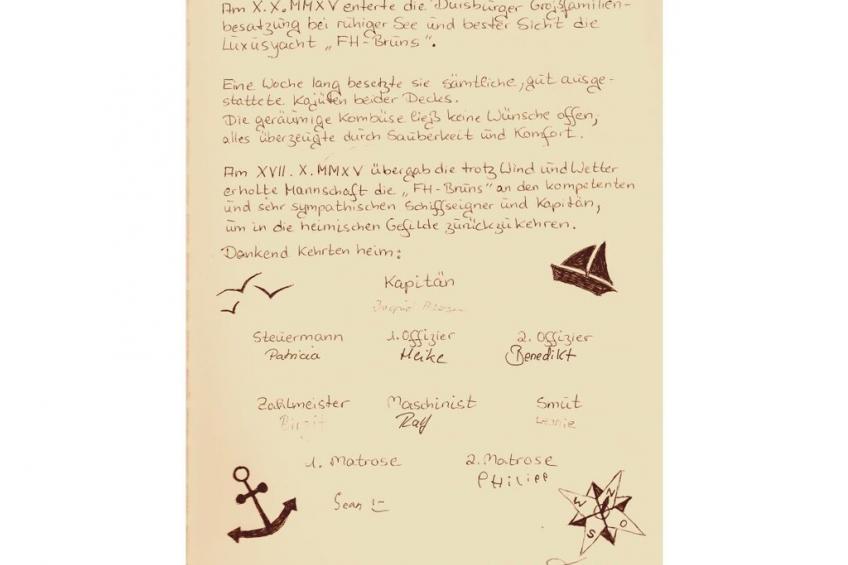 Am X.X.MMXV enterte die Duisburger Großfamilien-
besatzung bei ruhiger See und bester Sicht die
Luxusyacht „FH-Bruns".
Eine Woche lang besetzte sie sämtliche, gut ausge-
stattete Kajüten beider Decks.
Die geräumige Kombüse ließ keine Wünsche offen,
alles überzeugte durch Sauberkeit und Komfort.
Am XVII.X.MMXV übergab die trotz Wind und Wetter
erholte Mannschaft die „FH-Bruns" an den kompetenten
und sehr sympathischen Schiffseigner und Kapitän,
um in die heimischen Gefilde zurückzukehren.
Dankend kehrten heim:
Kapitän
Steuermann 1. Offizier 2. Offizier
Patricia Heike Benedikt
Zahlmeister Maschinist Smut
Birgit Ralf
1. Matrose 2. Matrose
Philipp
Sean
N
W O
S